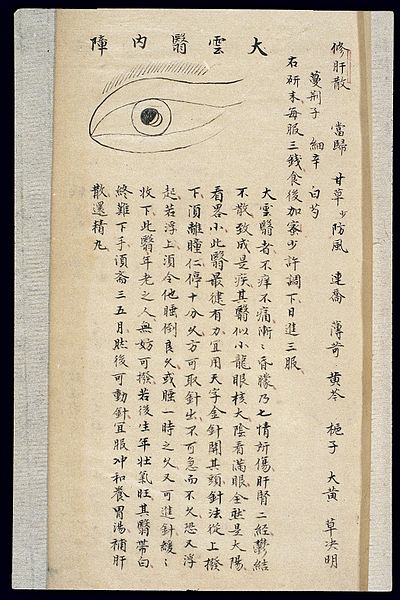 修肝散　當歸　甘草少　防風　連喬　薄苛　黄芩　梔子　大黄　草决明
蔓荆子　細辛　白芍
右研末每服三錢食後加家少許調下日進三服
大雲翳内障
大雲翳者不痒不痛漸〻昏朦乃七情所傷肝腎二經鬱結
不散致成是疾其翳似小龍眼核大陰看滿眼全然是大陽
看畧小此翳最徤有力宜用天字金針開其頭針法從上撥
下湏離瞳仁停十分久方可取針出不可急而不久恐又浮
起若浮上湏令他睡倒良久或睡一時之久又可進針緩〻
收下此翳年老之人無妨可撥若後生年壮氣旺其翳帶白
終難下手湏斋三五月然後可動針宜服冲和養胃湯補肝
散還精丸